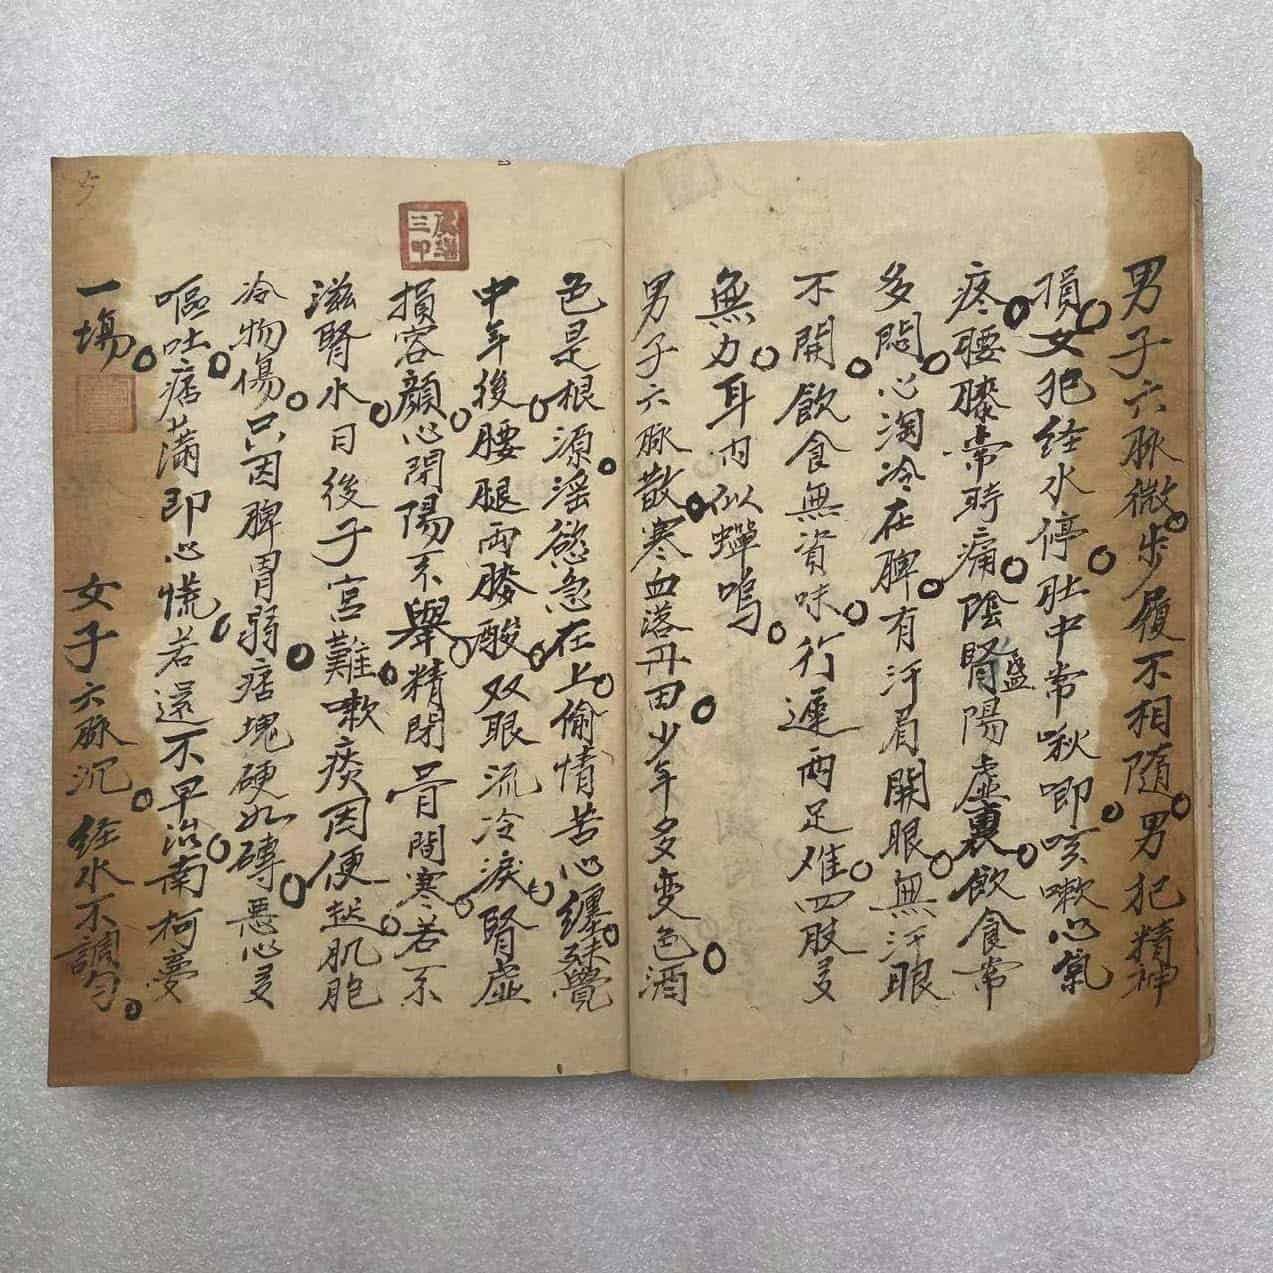 男子六脉微步履不相隨男犯精神
損女犯经水停肚中常啾唧咳嗽心氣
疼腰膝常時痛陰腎盛陽虛裏飲食常
多悶心淘冷在脾有汗眉開眼無汗眼
不開飲食無資味行遲两足难四肢多
無力耳内似蟬鳴
男子六脉散寒血落丹田少年多变色酒
色是根源淫慾急在上偷情苦心纏殊覺
中年後腰腿両膝酸双眼流冷淚腎虛
損容顏心閉陽不舉精閉骨間寒若不
滋腎水日後子宮難嗽痰因便起肌胞
冷物傷只因脾胃弱痞塊硬如磚惡心多
嘔吐痞滿即心慌若還不早治南柯夢
一塲
女子六脉沉经水不調匀